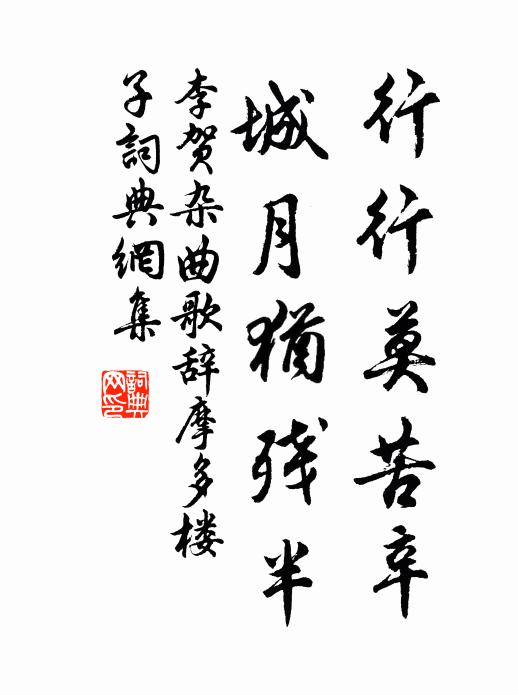 行行莫苦辛
城月犹残半
李贺杂曲歌辞摩多楼
子詞典網集
詞典
网印